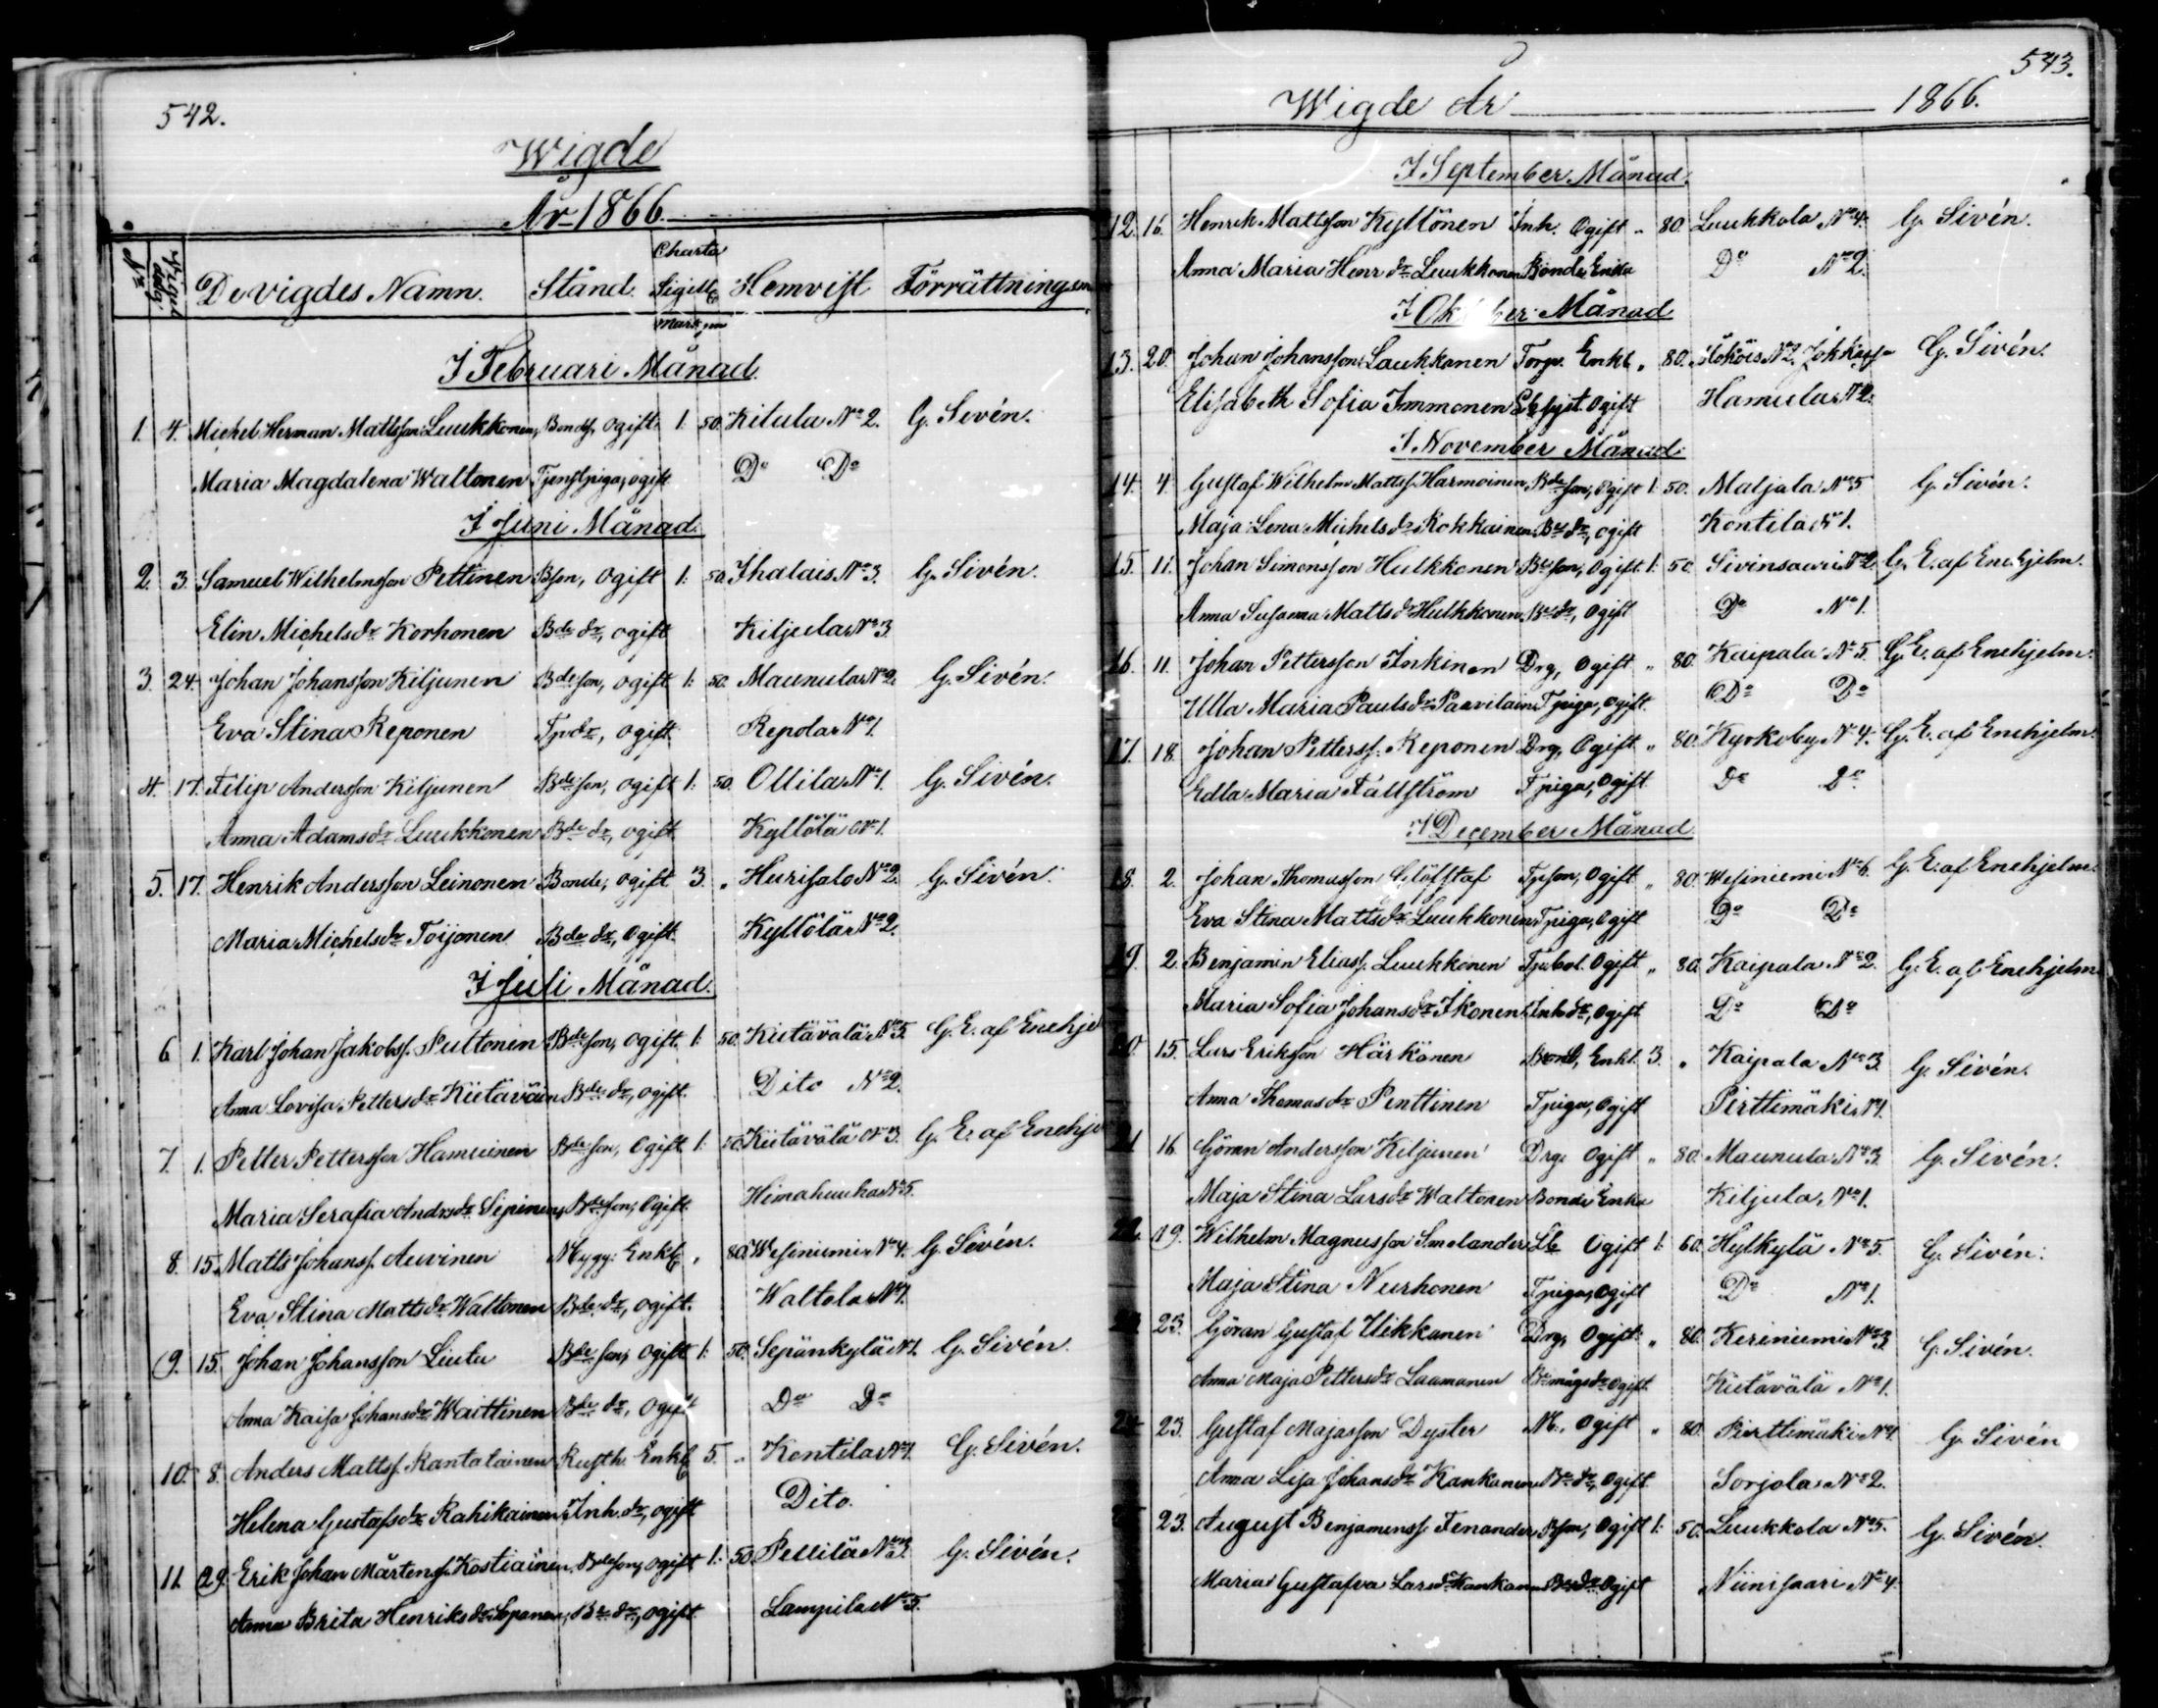 542.
Wigde
År 1866.
No Vigsel dag. De vigdes Namn. Stånd. Charta Sigill. Hemvist Förrättningsm
Mark pni
I Februari Månad.
1. 4. Michel Herman Mattsson Luukkonen, Bondes. ogift. 1. 50. Kitula No 2. G. Sivén.
Maria Magdalena Waltonen Tjenstpiga, ogift Do Do
I Juni Månad.
2. 3. Samuel Wilhelmsson Pettinen Bson, Ogift 1: 50. Ihalais No 3. G. Sivén.
Elin Michelsdr Korhonen Bde dr, ogift Kiljula No 3.
3. 24. Johan Johansson Kiljunen Bde son, ogift 1: 50. Maunula No 2. G. Sivén.
Eva Stina Reponen Tpdr, ogift. Repola No 1.
4. 17. Filip Andersson Kiljunen Bde son, ogift 1: 50. Ollila No 1. G. Sivén.
Anna Adamsdr Luukkonen Bde dr, ogift. Kyllölä No 1.
5. 17. Henrik Andersson Leinonen Bonde, ogift 3. " Hurisalo No 2. G. Sivén.
Maria Michelsdr Toijonen Bde dr, Ogift. Kyllölä No 2.
I Juli Månad.
6 1. Karl Johan Jakobss. Pultonen Bde son, ogift. 1: 50. Kietävälä No 5. G. E. af Enehje
Anna Lovisa Pettersdr Kietäväin Bde dr, ogift. Dito No 2.
7. 1. Petter Pettersson Hamuinen Bde son, Ogift 1: 50. Kietävälä No 3. G. E. af Enehje
Maria Serafia Andrsdr Sepinen, Bde son, Ogift. Himahuuha No 5.
8. 15. Matts Johanss. Auvinen Mygg: Enkl " 80. Wesiniemi No 4. G. Sivén.
Eva Stina Mattsdr Waltonen Bde dr, ogift. Waltola No 1.
9. 15. Johan Johansson Liutu Bde son, Ogift 1: 50. Sepänkylä No 1. G. Sivén.
Anna Kaisa Johansdr Waittinen Bde dr, Ogift Do Do
10. 8. Anders Mattss. Rantalainen Rusth. Enkl 5. " Kontila No 1. G. Sivén.
Helena Gustafsdr Rahikainen Inh. dr, ogift Dito.
11. 29. Erik Johan Mårtenss. Kostiainen, Bde son, ogift 1: 50. Pellilä No 3. G. Sivén.
Anna Brita Henriksdr Sepanen, Bde dr, ogift Lampila No 5.
543.
Wigde År 1866.
I September Månad.
12. 16. Henrik Mattsson Kyllönen Inh. Ogift " 80. Luukkola No 4. G. Sivén.
Anna Maria Henr dr Luukkonen Bonde Enka Do No 2.
I Oktober Månad
13. 20. Johan Johansson Laukkanen Torp. Enkl. " 80. G. Sivén.
Elisabeth Sofia Immonen Ogift Hamula No 2.
I November Månad.
14. 4. Gustaf Wilhelm Mattss. Harmoinen, Bde son, Ogift 1: 50. Maljala No 5 G. Sivén.
Maja Lena Michelsdr Rokkainen Bde dr, ogift Kontila No 1.
15. 11. Johan Simonsson Hulkkonen Bde son, Ogift 1: 50. Sivinsaari No 2. G. E. af Enehjelm.
Anna Susanna Mattsdr Hulkkonen, Bde dr, Ogift Do No 1.
16. 11. Johan Pettersson Inkinen Drg, Ogift " 80. Kaipala No 5. G. E. af Enehjelm.
Ulla Maria Paulsdr Paavilain. Tpiga, ogift. Do Do
17. 18. Johan Petterss. Reponen Drg, Ogift. " 80. Kyrkoby No 4. G. E. af Enehjelm.
Edla Maria Fällström Tpiga, Ogift. Do Do
I December Månad.
18. 2. Johan Thomasson Glöfstaf Tpson, Ogift " 80. Wesiniemi No 6. G. E. af Enehjelm.
Eva Stina Mattsdr Luukkonen Tpiga, Ogift Do Do
19. 2. Benjamin Eliass. Luukkonen Ogift " 80. Kaipala No 2. G. E. af Enehjelm
Maria Sofia Johansdr Ikonen Inh dr, Ogift Do Do
20. 15. Lars Eriksson Härkönen Bond, Enkl. 3. " Kaipala No 3. G. Sivén.
Anna Thomasdr Penttinen Tpiga, Ogift Pirttimäki No 1.
21 16. Göran Andersson Kiljunen Drg. Ogift " 80. Maunula No 3. G. Sivén.
Maja Stina Larsdr Waltonen Bonde Enka Kiljula, No 1.
22. 19. Wilhelm Magnusson Smolander Ogift 1: 60. Hylkylä No 5. G. Sivén.
Maja Stina Nurhonen Tpiga, Ogift Do No 1.
23. 23. Göran Gustaf Ukkanen Drg, Ogift. " 80. Keriniemi No 3. G. Sivén.
Anna Maja Pettersdr Laamanen Bdemågs dr Ogift. Kietävälä No 1.
24 23. Gustaf Majasson Dyster M., Ogift " 80. Pirttimäki No 4. G. Sivén
Anna Lisa Johansdr Kankanen Bde dr, Ogift Sorjola No 2.
23. August Benjaminss. Tenander Bson, Ogift 1: 50. Luukkola No 5. G. Sivén.
Maria Gustafva Larsdr Kankanen Bde dr Ogift Niinisaari No 4